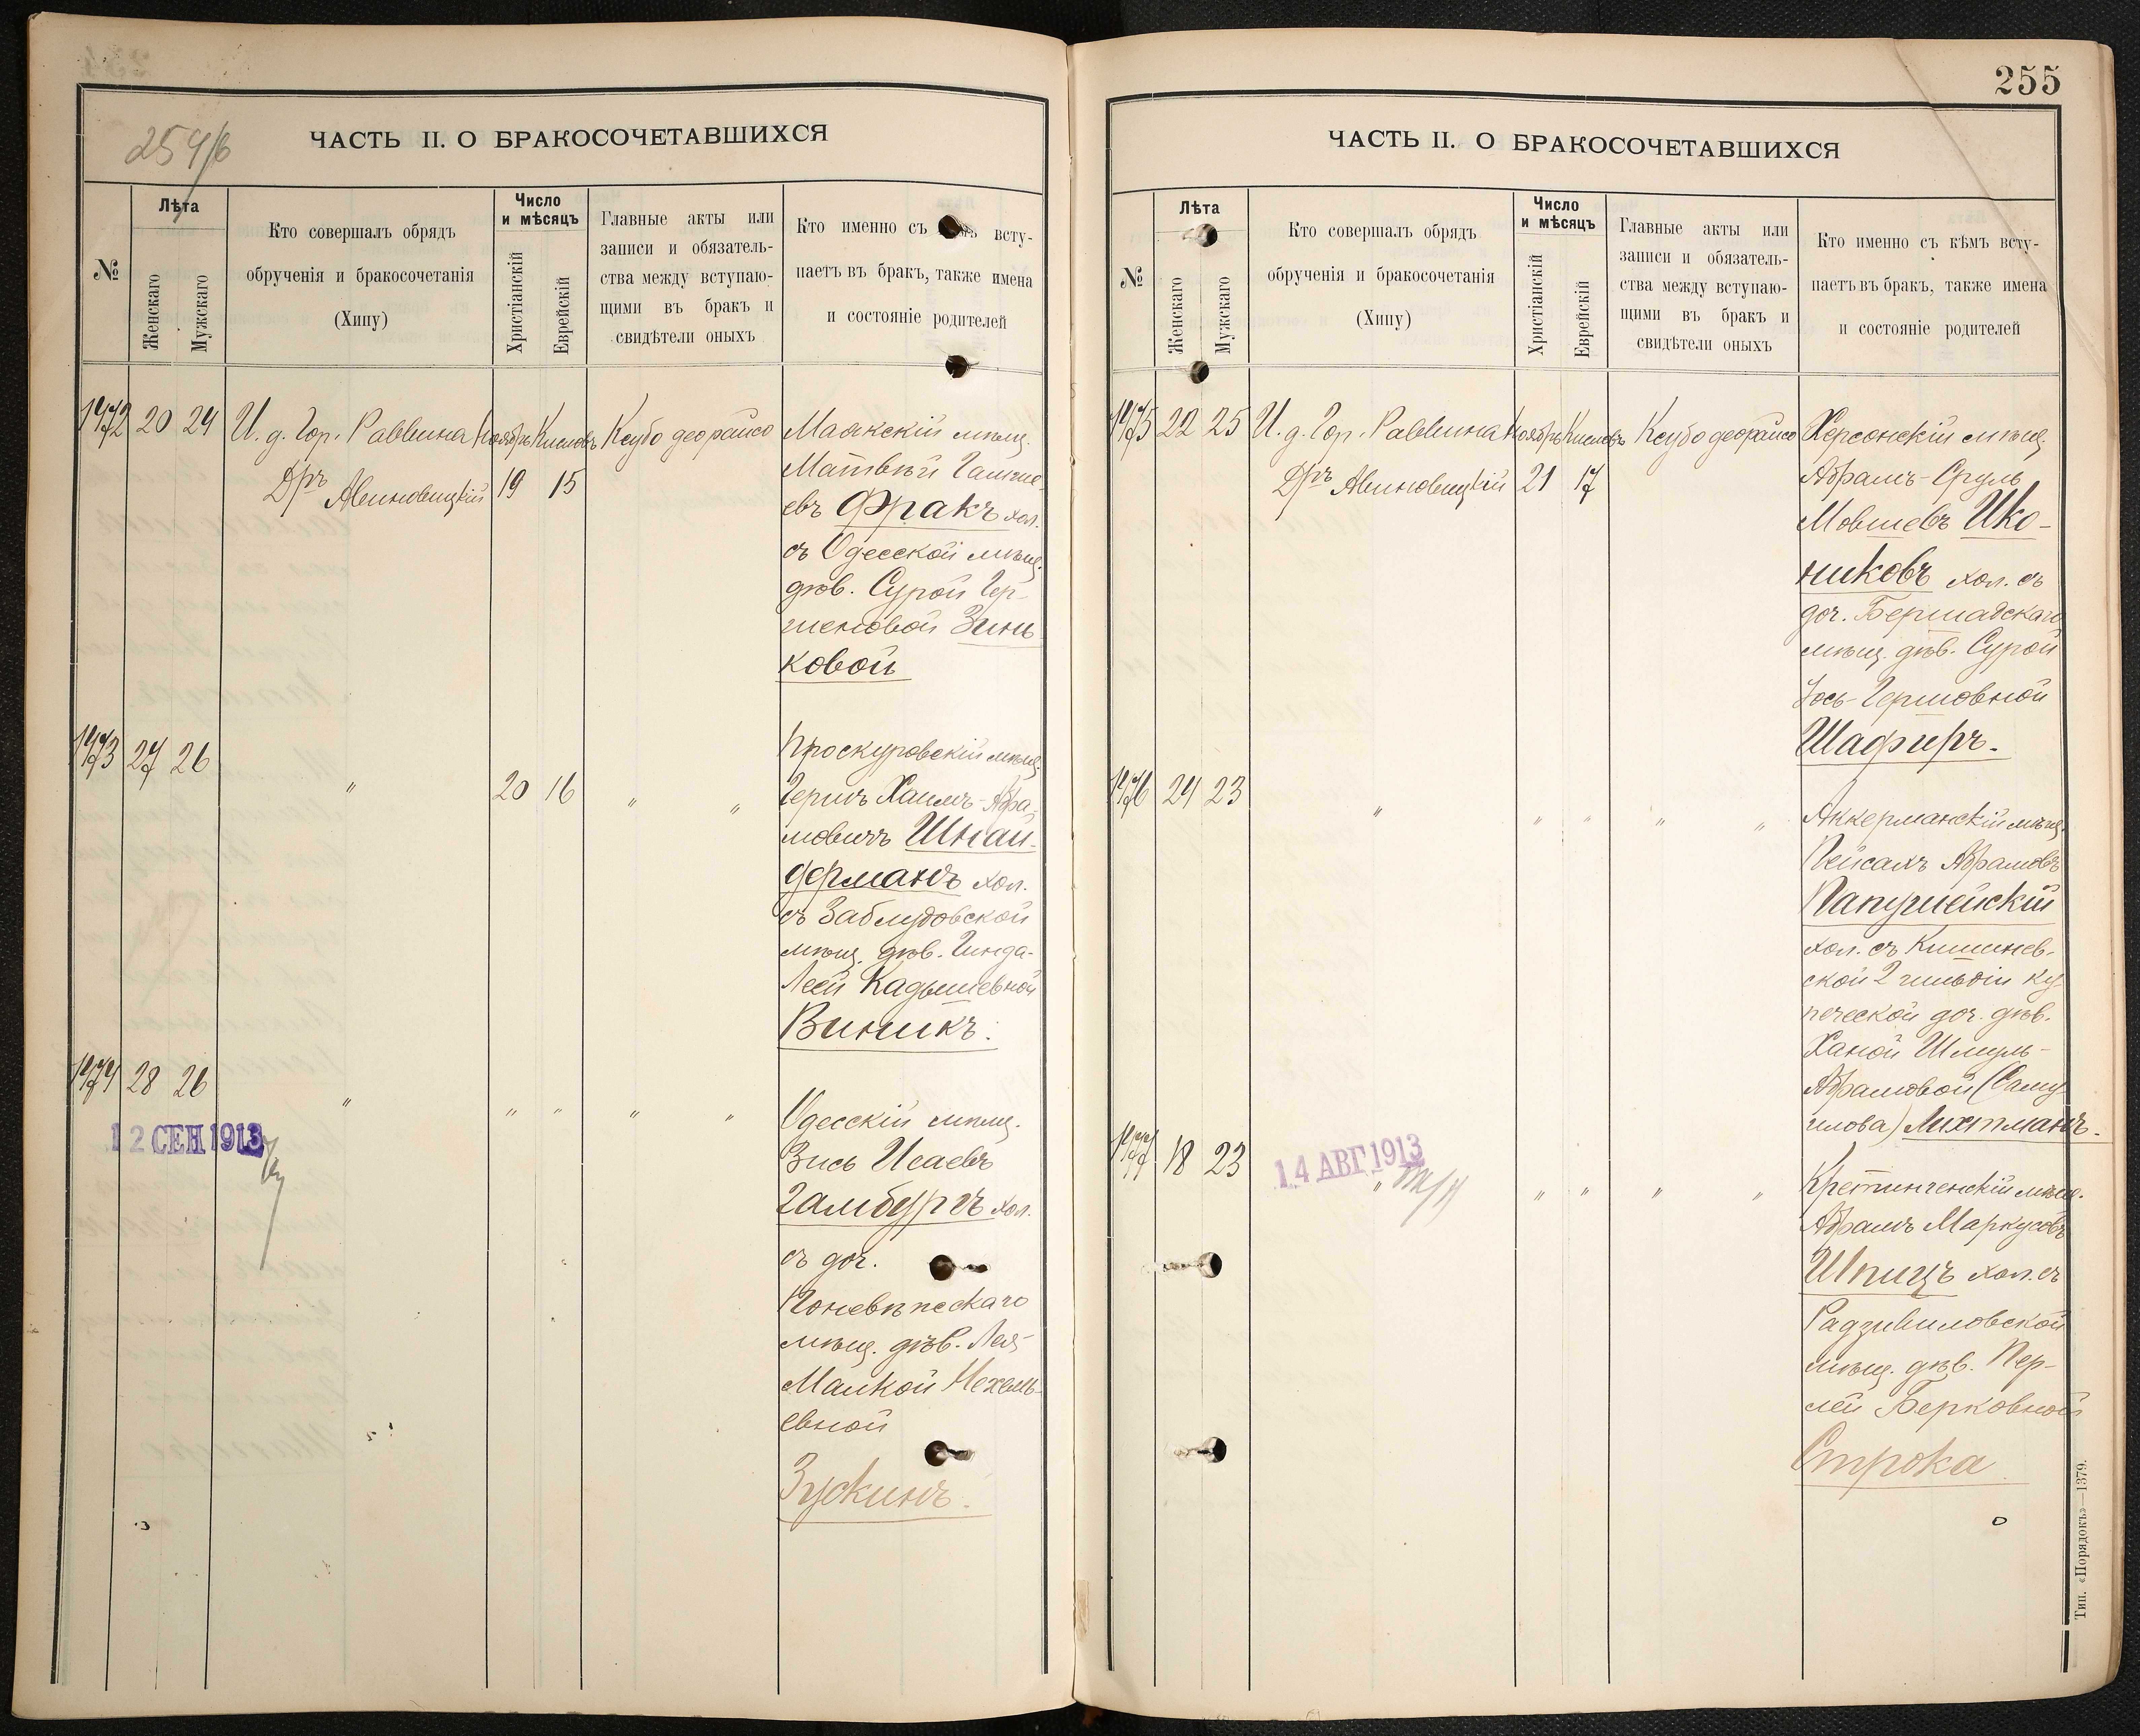 254/б
ЧАСТЬ II. О БРАКОСОЧЕТАВШИХСЯ
№
Лѣта
Женскаго
Мужскаго
Кто совершалъ обрядъ
обрученія и бракосочетанія
(Хипу)
Число
и мѣсяцъ
Христіанскій
Еврейскій
Главные акты или
записи и обязатель-
ства между вступаю-
щими въ бракъ и
свидѣтели оныхъ
Кто именно съ кѣмъ всту-
паетъ въ бракъ, также имена
и состояніе родителей
1472 20 24 И. д. Гор. Раввина Ноябрь Кислевъ Ксубо деорайсо
Дръ Авиновицкій 19 15
Маякскій мѣщ.
Матвѣй
евъ Фракъ хол.
съ Одесской мѣщ.
дѣв. Сурой Гер-
шеновой Зинь
ковой
1473 27 26 " 20 16 " "
Проскуровскій мѣщ.
Гершъ Хаимъ-Абра-
мовичъ Шнай-
дерманъ хол.
съ Заблудовской
мѣщ. дѣв. Гинда-
Леей Кадышевной
Виникъ.
1474 28 26 " " " " "
12 СЕН 1913
Одесскій мѣщ.
Зись Исаевъ
Гамбургъ хол.
съ доч.
Поневѣжскаго
мѣщ. дѣв. Лея-
Малкой Нехемь-
евной
Зускинъ.
255
ЧАСТЬ II. О БРАКОСОЧЕТАВШИХСЯ
№
Лѣта
Женскаго
Мужскаго
Кто совершалъ обрядъ
обрученія и бракосочетанія
(Хипу)
Число
и мѣсяцъ
Христіанскій
Еврейскій
Главные акты или
записи и обязатель-
ства между вступаю-
щими въ бракъ и
свидѣтели оныхъ
Кто именно съ кѣмъ всту-
паетъ въ бракъ, также имена
и состояніе родителей
1475 22 25 И. д. Гор. Раввина Ноябрь Кислевъ Ксубо деорайсо
Дръ Авиновицкій 21 17
Херсонскій мѣщ.
Абрамъ-Сруль
Мовшевъ Ико-
никовъ хол. съ
доч. Бершадскаго
мѣщ. дѣв. Сурой
Іось-Гершовной
Шафиръ.
1476 24 23 " " " " "
Аккерманскій мѣщ.
Пейсахъ Абрамовъ
Папушейскій
хол. съ Кишинев-
ской 2 гильдіи ку-
печеской доч. дѣв.
Ханой Шмуль-
Абрамовой (Саму-
илова) Лихтманъ.
1477 18 23 " " " " "
14 АВГ 1913
Кретингенскій мѣщ.
Абрамъ Маркусовъ
Шпицъ хол. съ
Радзивиловской
мѣщ. дѣв. Пер-
лей Берковной
Строка
Тип. «Порядокъ»—1379.